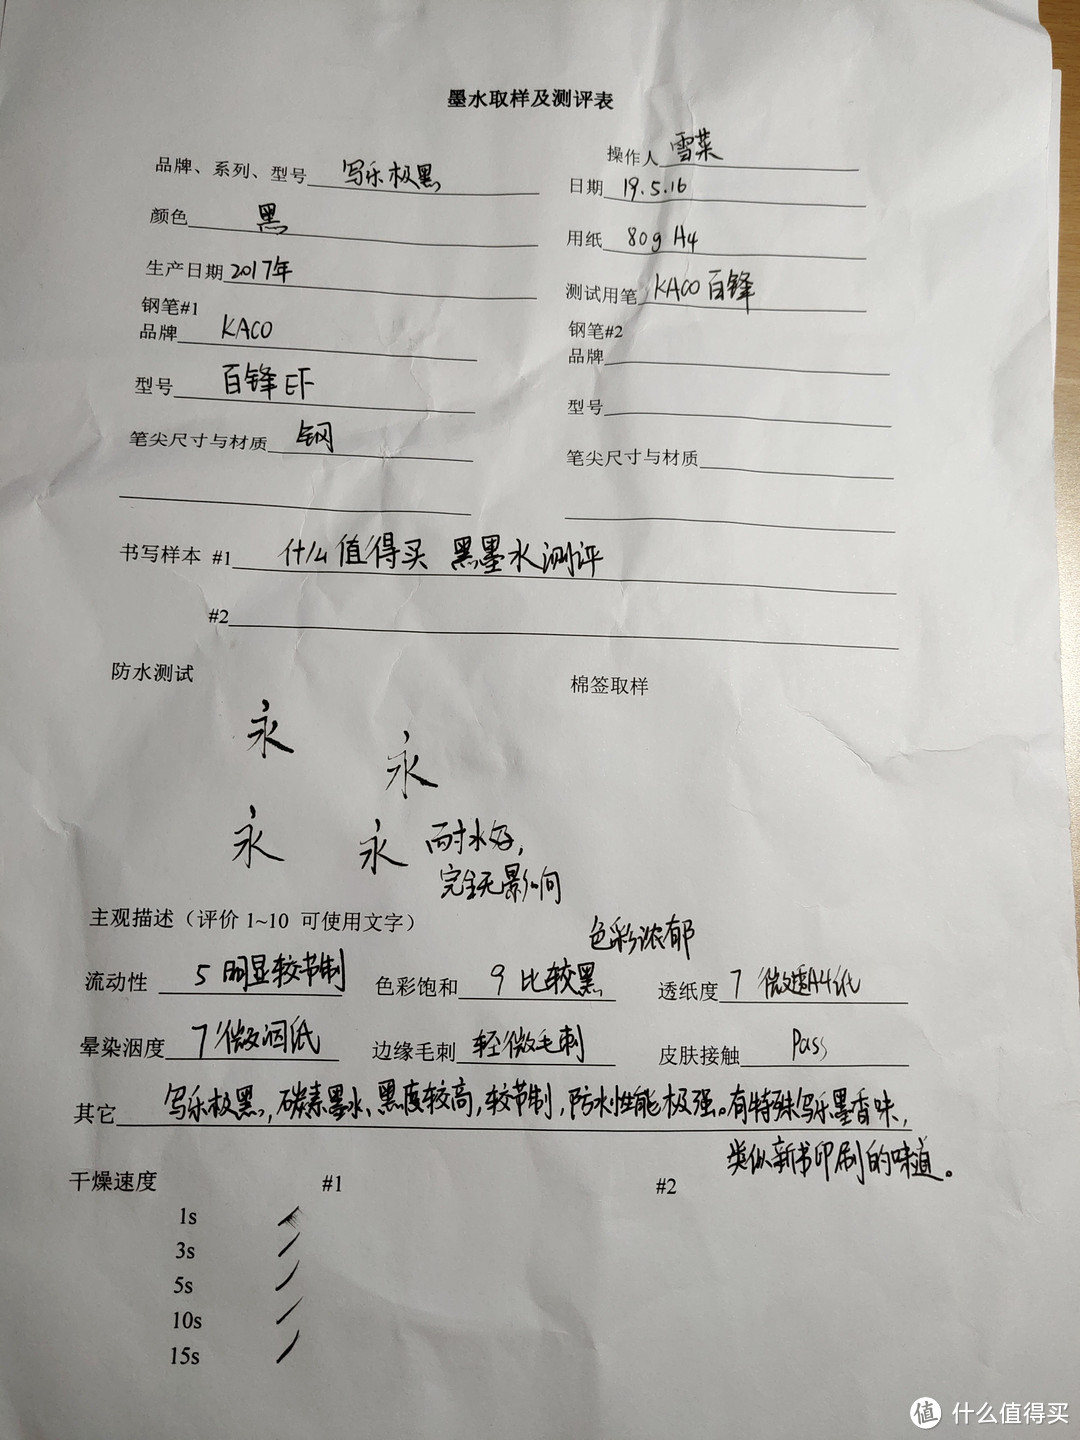 墨水取样及测评表
品牌、系列、型号 写乐极黑 操作人 雪菜
日期 19.5.16
颜色 黑 用纸 80g A4
生产日期 2017年 测试用笔 KACO百锋
钢笔#1 钢笔#2
品牌 KACO 品牌
型号 百锋 EF 型号
笔尖尺寸与材质 钢 笔尖尺寸与材质
书写样本 #1 什么值得买 黑墨水测评
#2
防水测试 棉签取样
永 永
永 永 耐水好,
完全无影响
主观描述（评价 1~10 可使用文字） 色彩浓郁
流动性 5 明显较节制 色彩饱和 9 比较黑 透纸度 7 微透A4纸
晕染洇度 7 微洇纸 边缘毛刺 轻微毛刺 皮肤接触 Pass
其它 写乐极黑,碳素墨水、黑度较高,较节制,防水性能极强。有特殊写乐墨香味,
类似新书印刷的味道。
干燥速度 #1 #2
1s
3s
5s
10s
15s
值 什么值得买